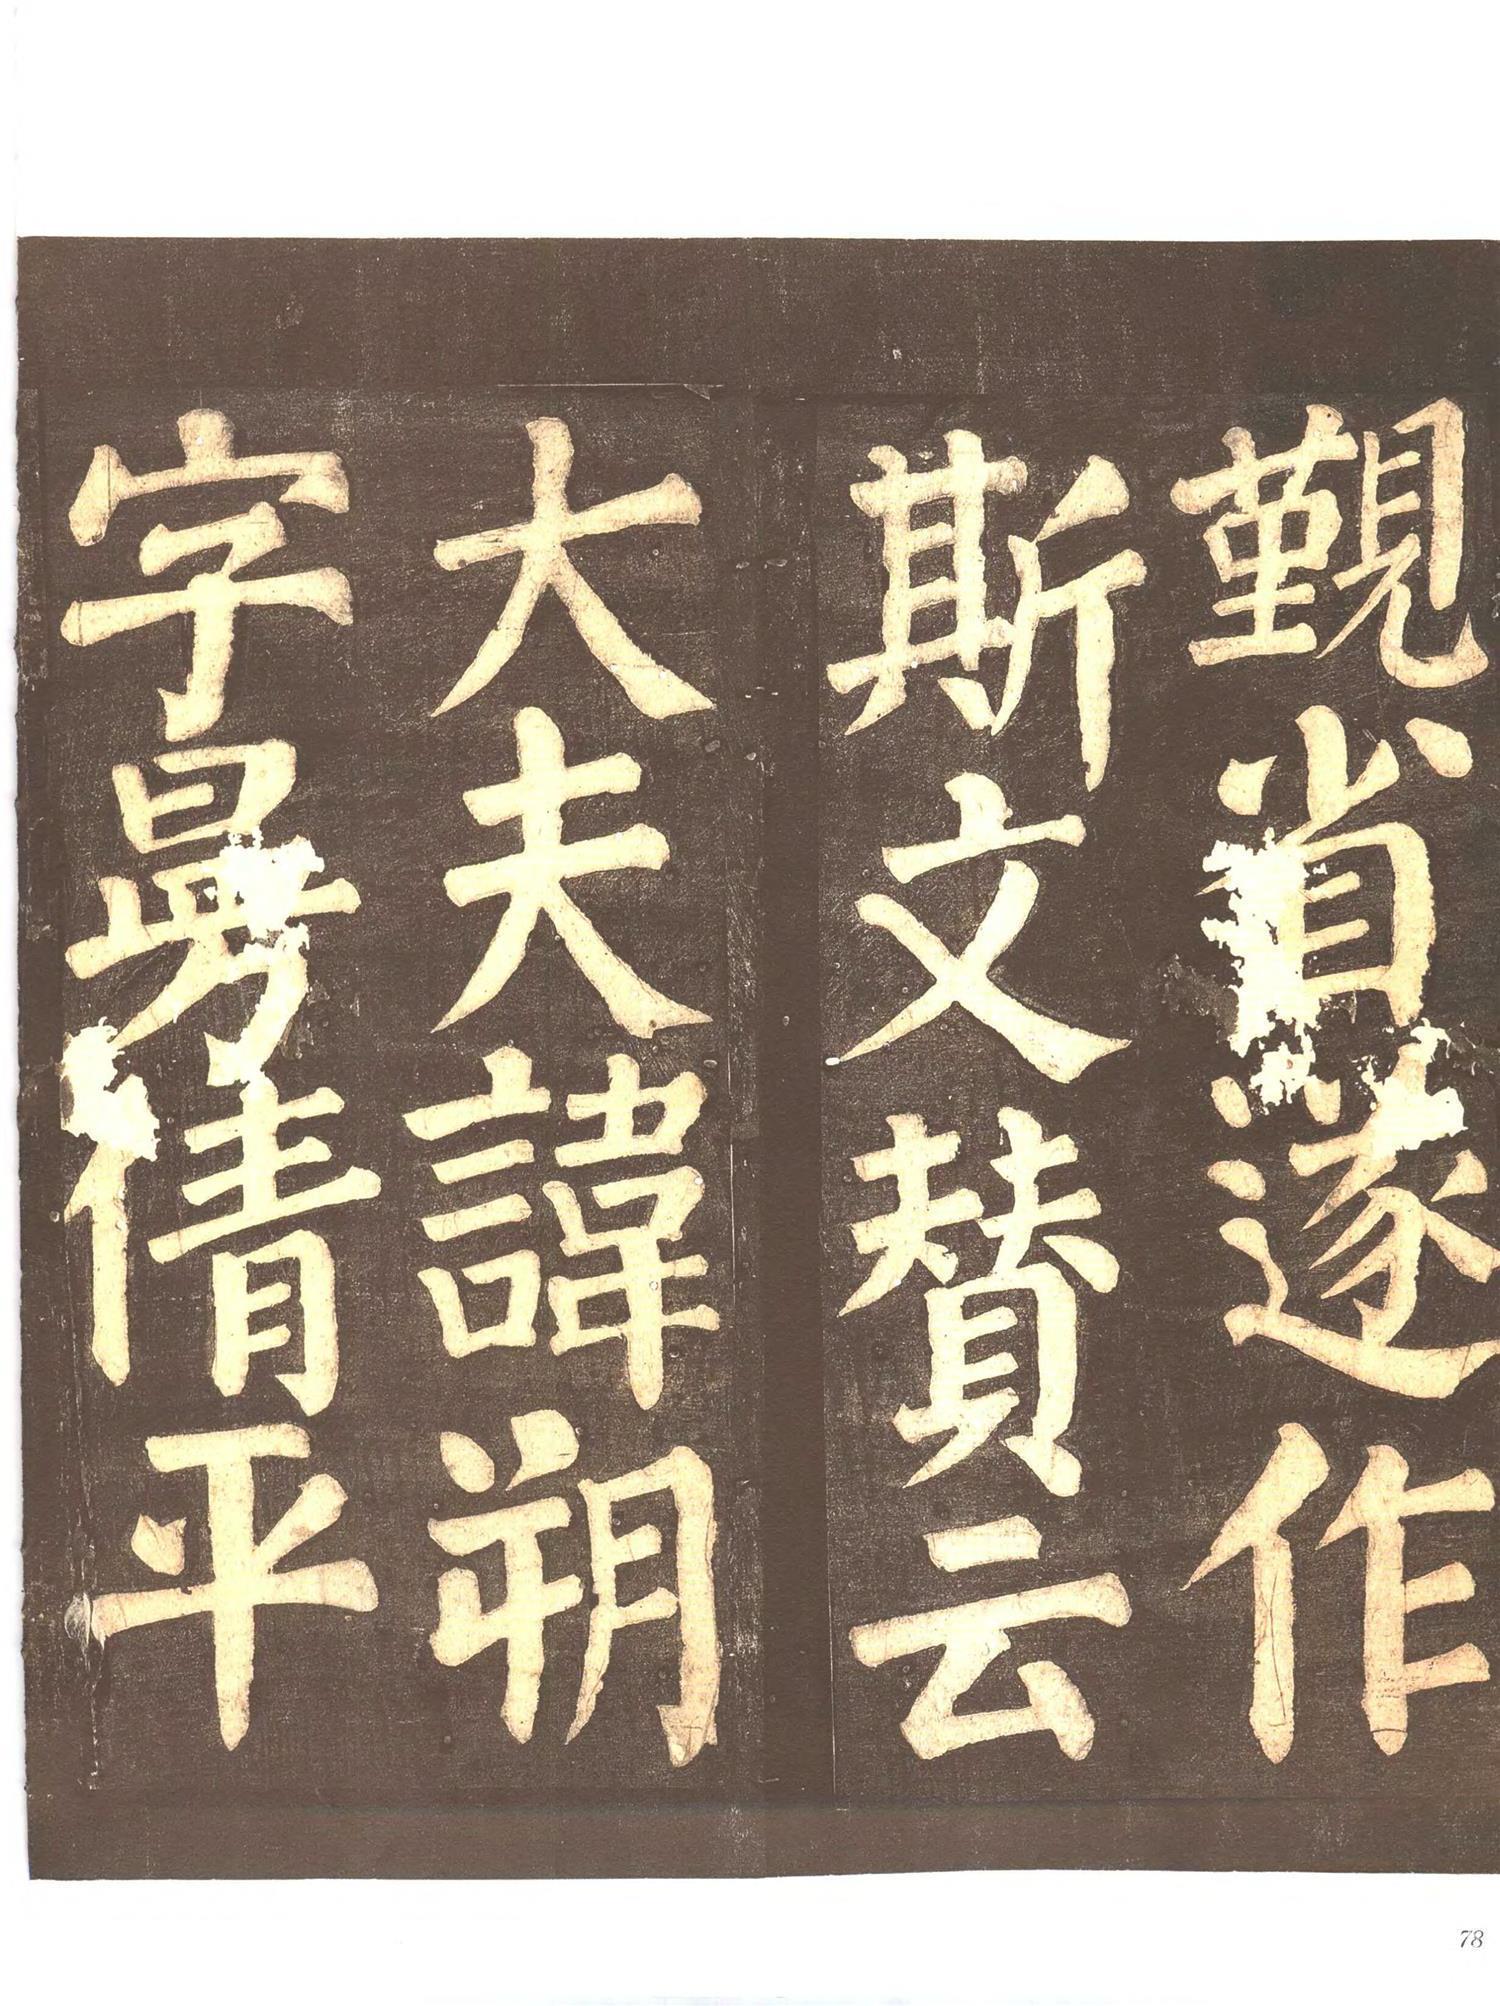 覲省遂作
斯文賛云
大夫諱朔
字曼倩平
78